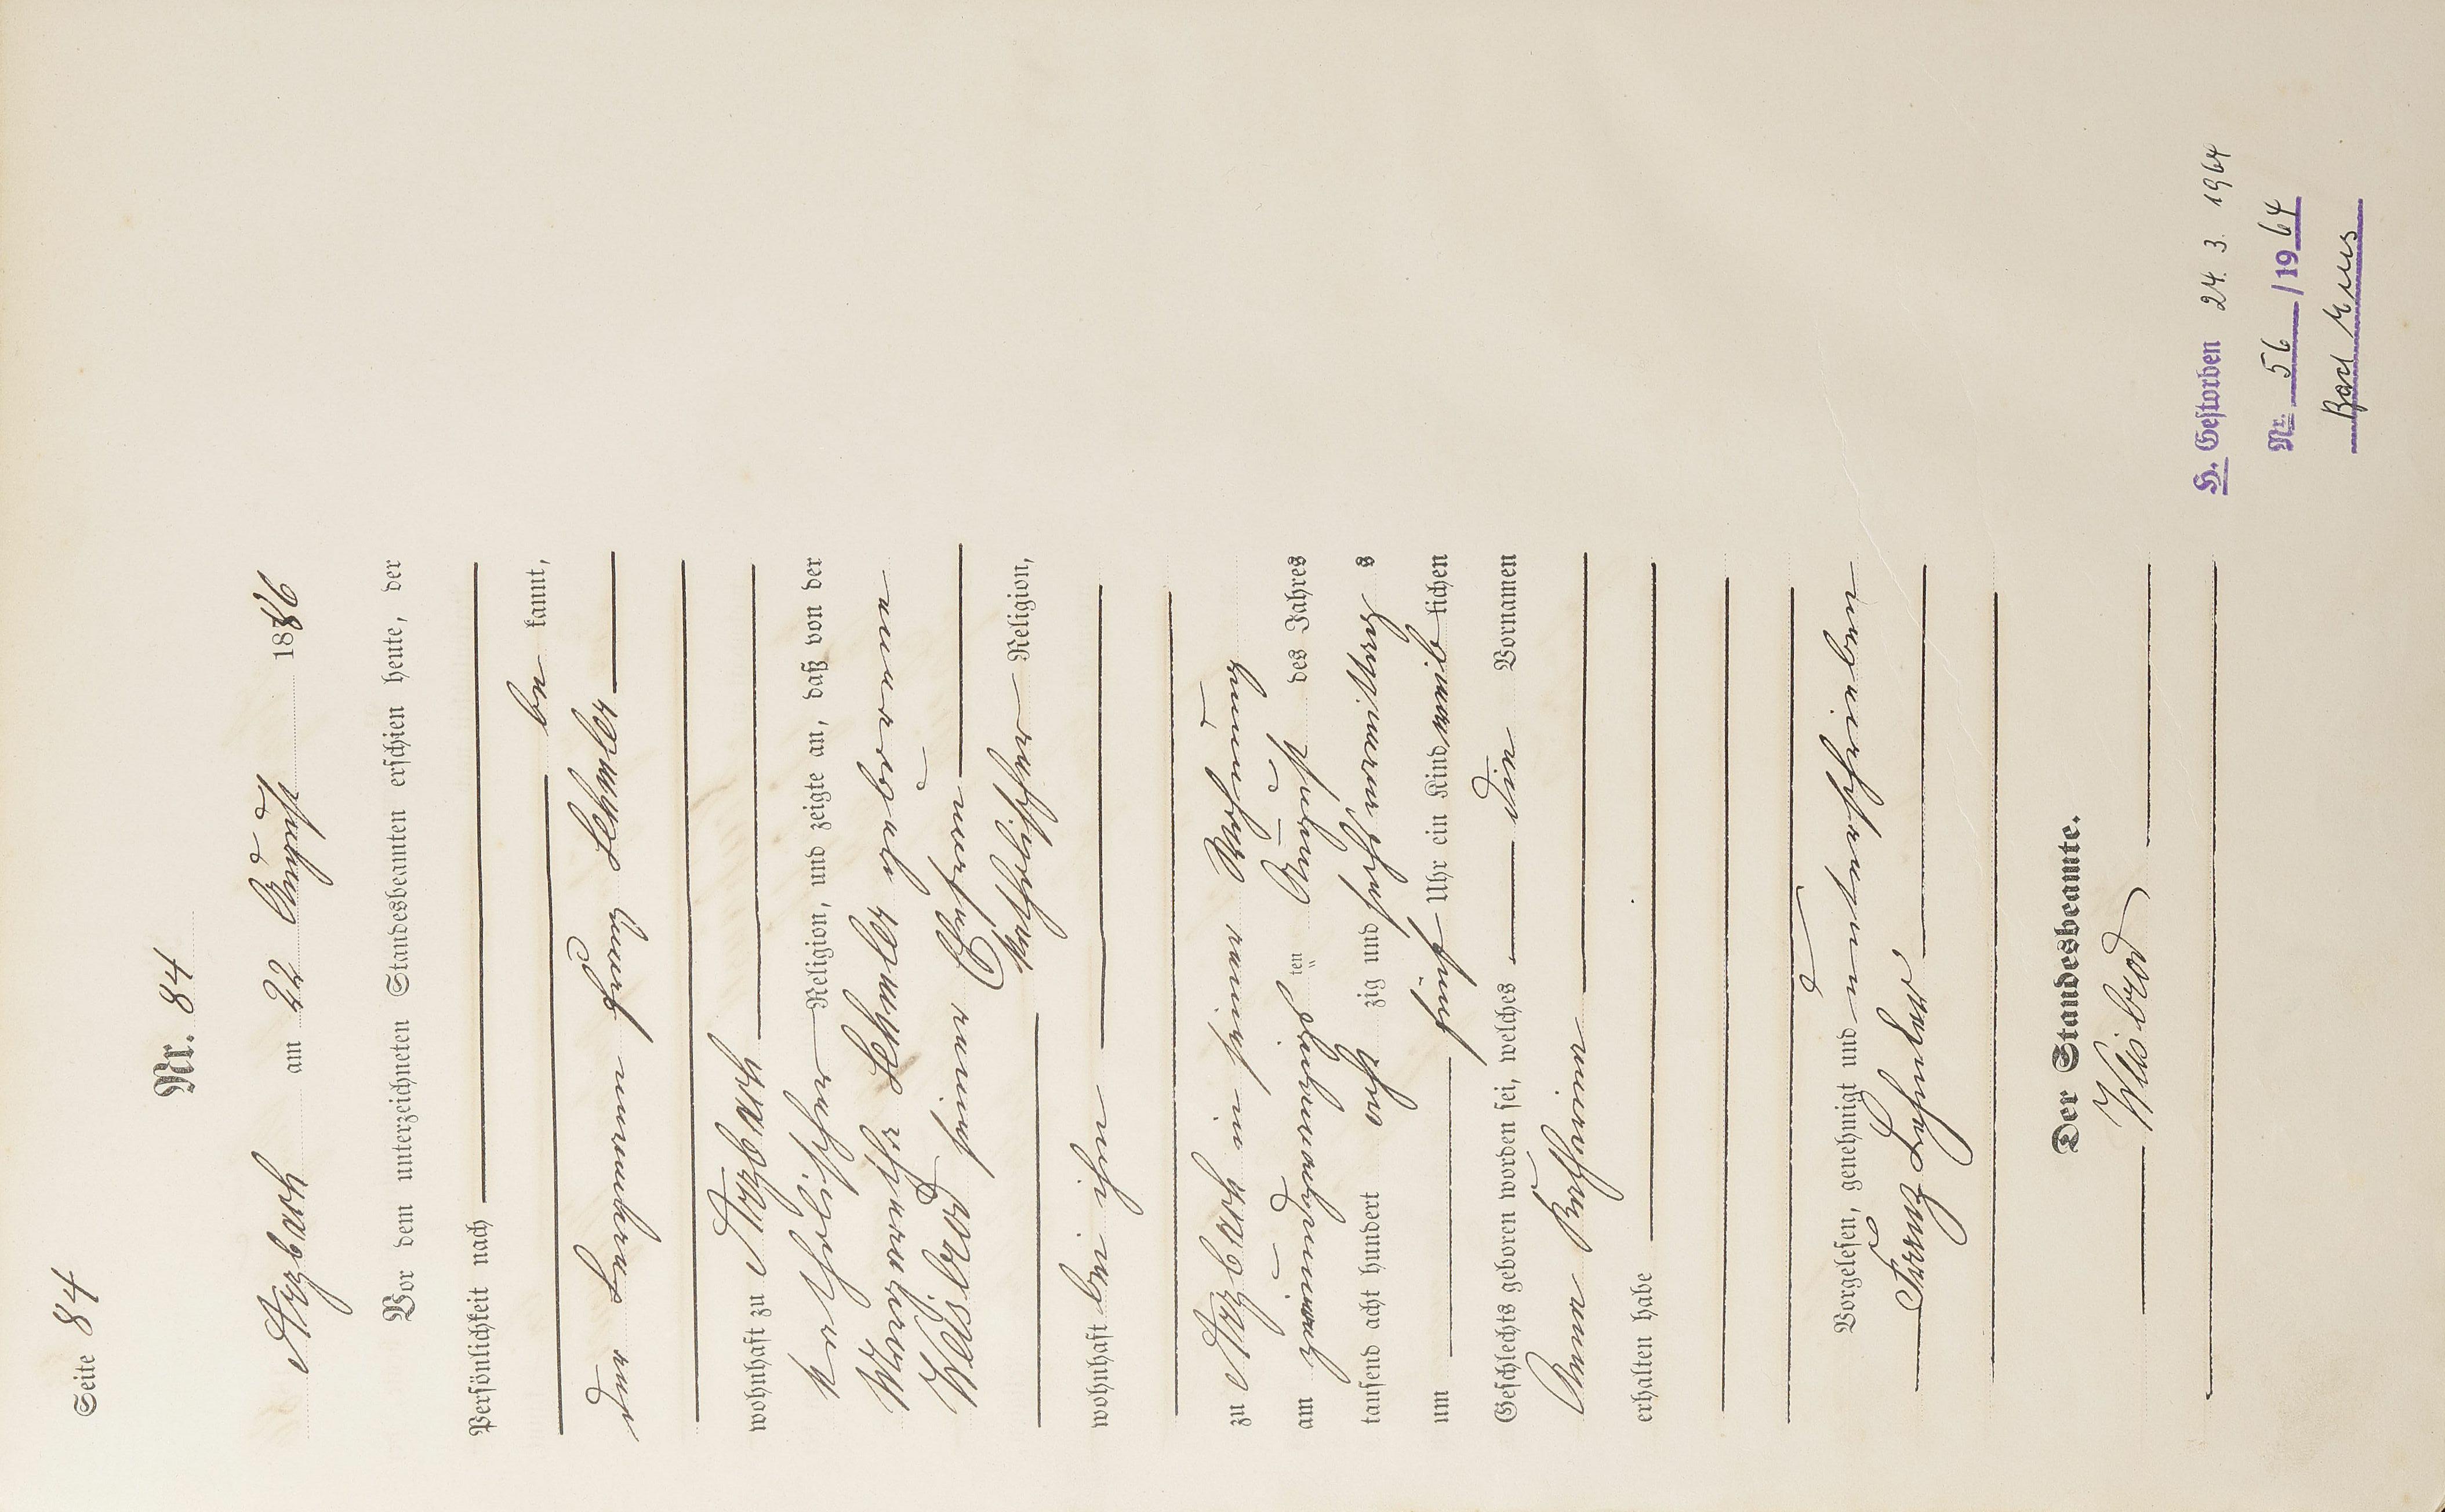 Seite 84
Nr. 84
Arzbach am 22 August 1886
Vor dem unterzeichneten Standesbeamten erschien heute, der
Persönlichkeit nach
be kannt,
Franz Lehmler
wohnhaft zu Arzbach
katholischer Religion, und zeigte an, daß von der
Margaretha Lehmler geborenen
Weisbrod seiner Ehefrau
katholischer Religion,
wohnhaft bei ihm
zu Arzbach in seiner Wohnung
am ten August des Jahres
tausend acht hundert acht zig und sechs Vormittags
um fünf Uhr ein Kind weiblichen
Geschlechts geboren worden sei, welches die Vornamen
Anna Katharina
erhalten habe
Vorgelesen, genehmigt und unterschrieben
Franz Lehmler
Der Standesbeamte.
Weisbrod
H. Gestorben 24. 3. 1964
Nr. 56 /1964
Bad Ems